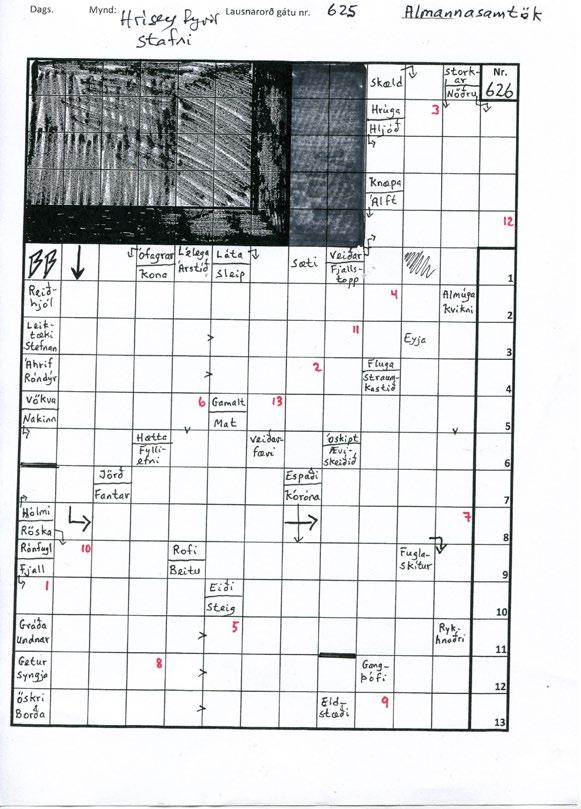 Dags. Mynd: Hrísey fyrir Lausnarorð gátu nr. 625 Almannasamtök
stafni
Skæld Stork-ar Nöðru Nr. 626
Hrúga Hljóð 3
Knæpa Álft
12
BB Ófagrar Kona Lélega Árstíð Láta Sleip Sæti Veiðar Fjalls-topp 1
Reið-hjól 4 Almúga Kvikni 2
Leik-tæki Stefnan > 11 Eyja 3
Áhrif Rándýr > 2 Fluga Straum-kastið 4
Vökva Nakinn 6 Gamalt Mat 13 5
Hætta Fylli-efni Veiðar-færi Óskipt Ævi-skeiðið 6
Jörð Fantar Espaði Kóróna 7
Hólmi Röska 7 8
Ránfugl Fjall 10 Rofi Beitu Fugla-skítur 9
1 Eiði Steig 10
Gráða Undnar > 5 Ryk-hnoðri 11
Getur Syngja 8 > Gang-þófi 12
Öskri Borða > Eld-stæði 9 13